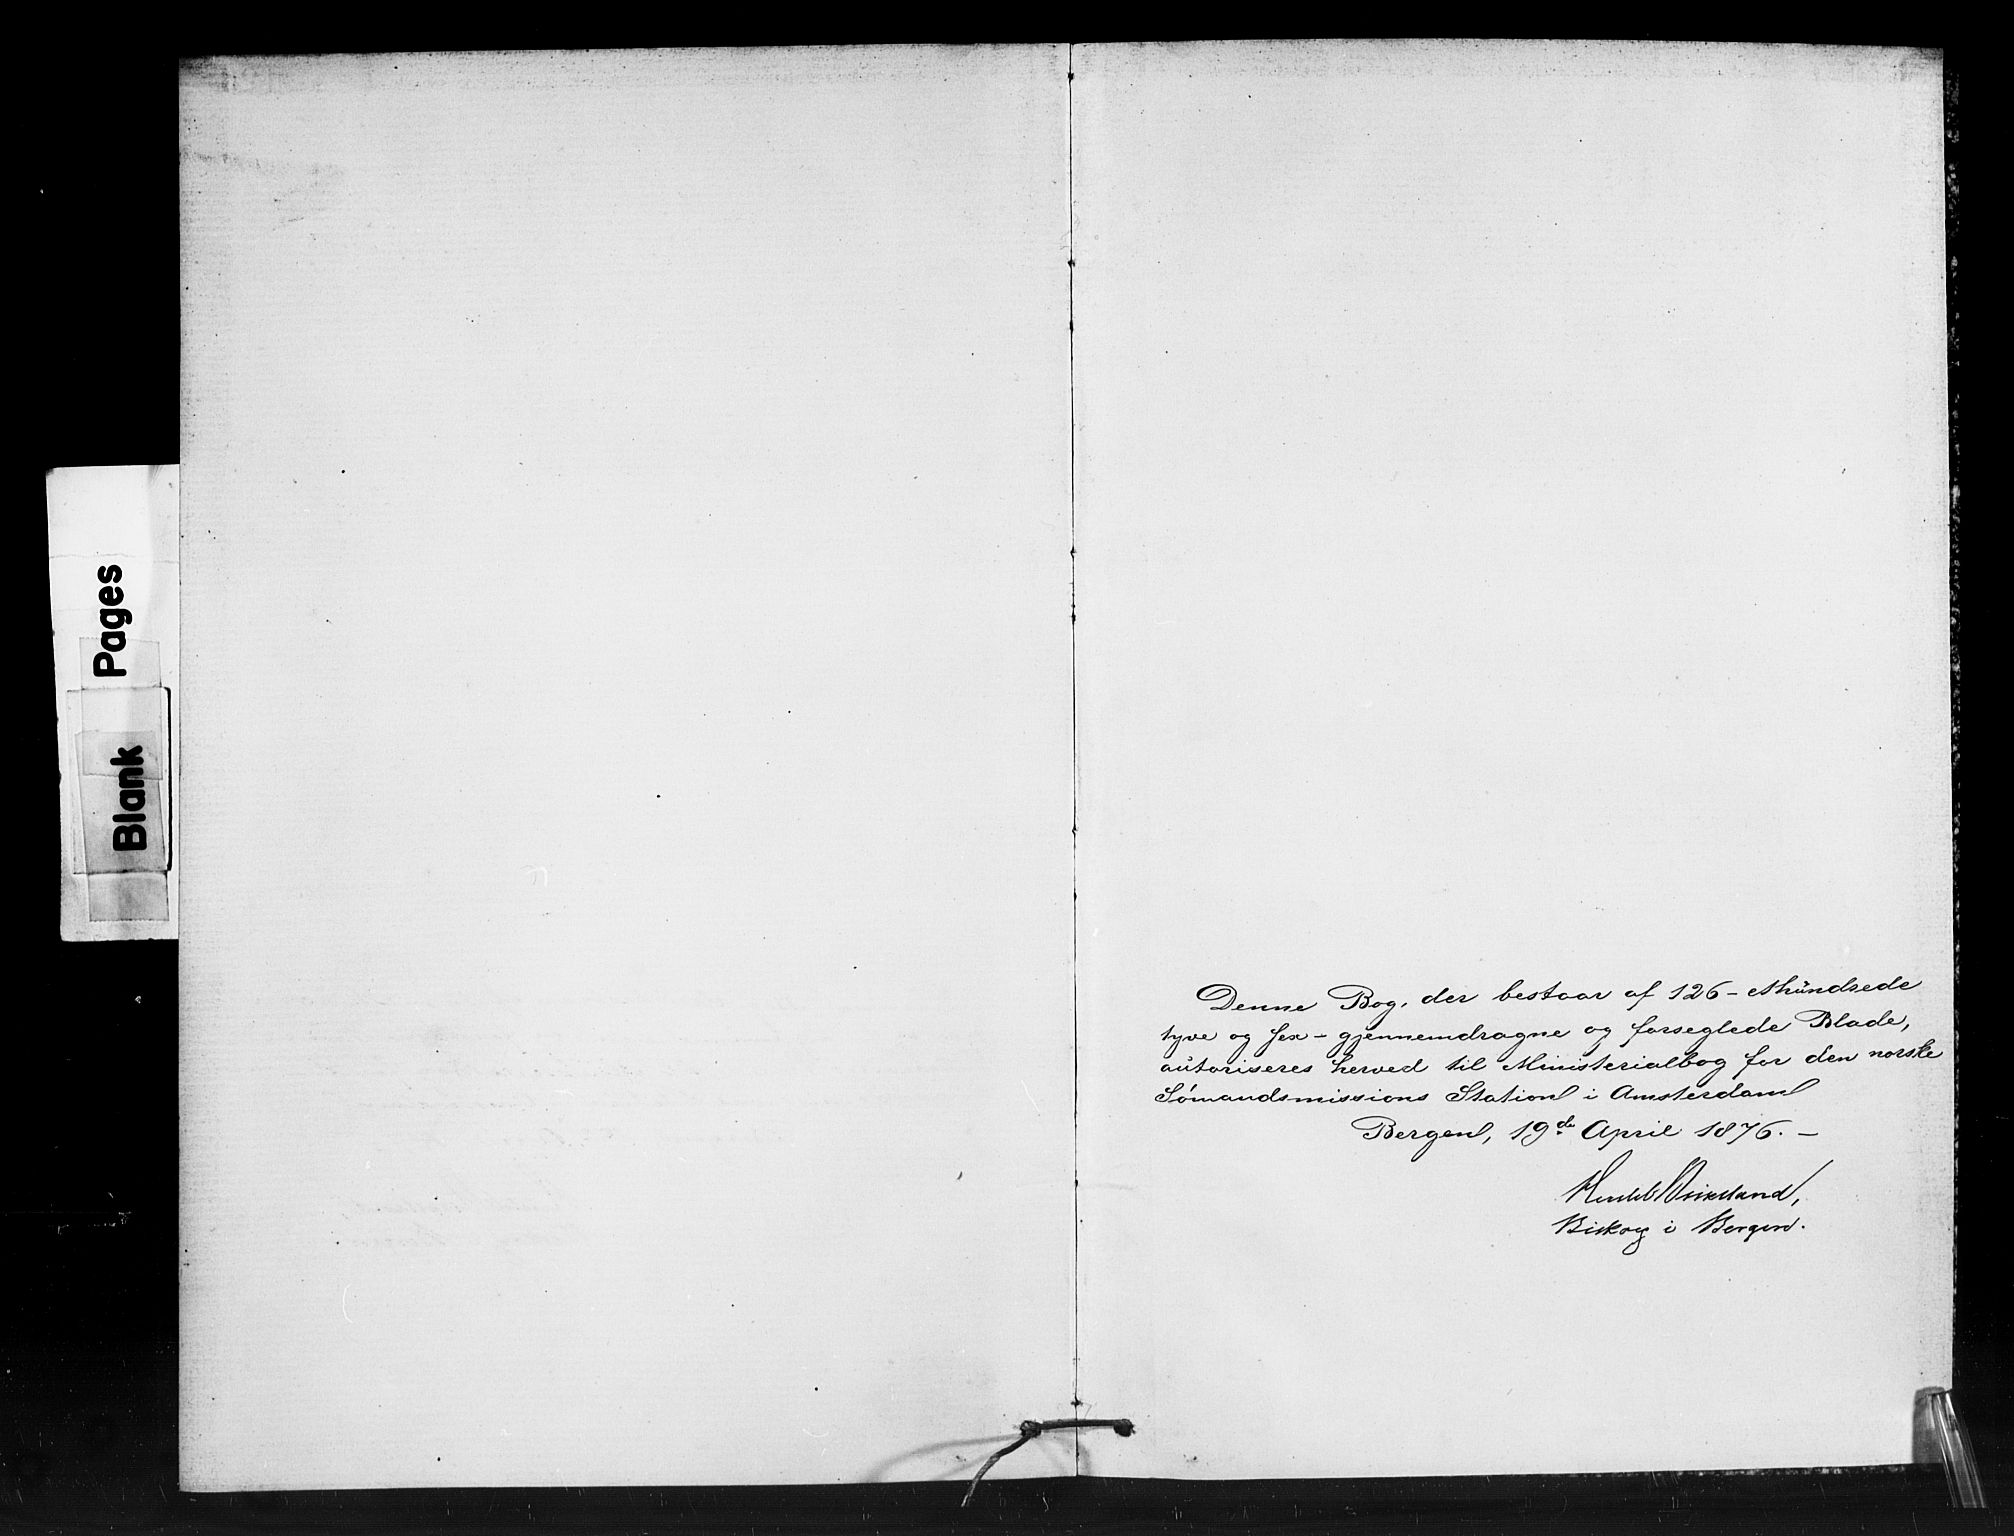 Blank Pages
Denne Bog, der bestaar af 126 – ethündrede
tyve og sex – gjennemdragne og forseglede Blade,
aütoriseres herved til Ministerialbog for den norske
Sømandsmissions Station i Amsterdam
Bergen, 19de April 1876. –
Biskop i Bergen.